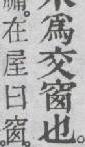 木爲交窗也。
牖。在屋曰窗。